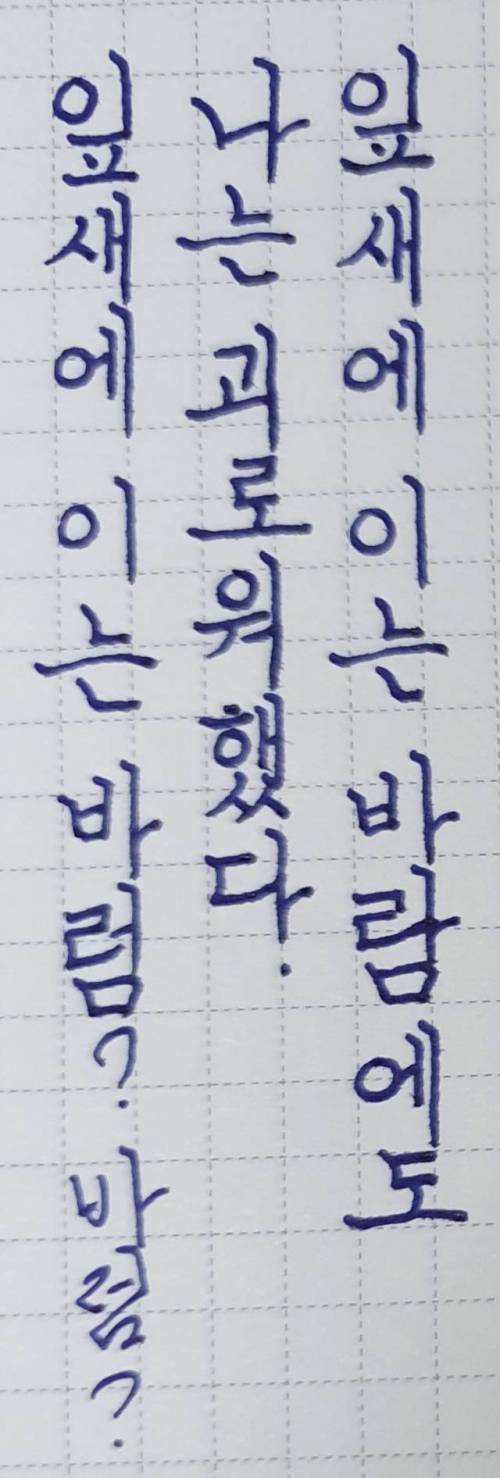 잎새에 이는 바람에도
나는 괴로워했다.
잎새에 이는 바럼?